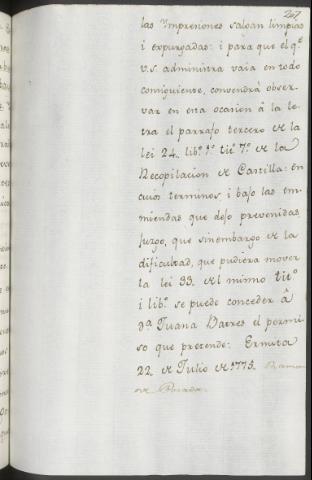 207.
las Ympresiones salgan limpias
i expurgadas: i para que el q.e
V.S. administra vaia en todo
consiguiente, convendrá obser-
var en esta ocasion â la le-
tra el parrafo tercero de la
lei 24. lib.o 1.o tit.o 7.o de la
Recopilacion de Castilla: en
cuios terminos i bajo las en-
miendas que dejo prevenidas
juzgo, que sin embargo de la
dificultad, que pudiera mover
la lei 33. del mismo tit.o
i lib.o se puede conceder â
D.a Juana Batres el permi-
so que pretende: Ermita
22. de Julio de 1775. Ramon
de Posada.